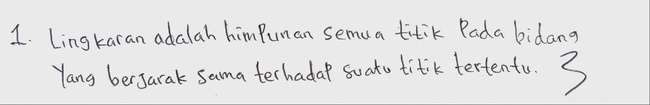 1. Lingkaran adalah himpunan semua titik Pada bidang
Yang berjarak sama terhadap suatu titik tertentu. 3